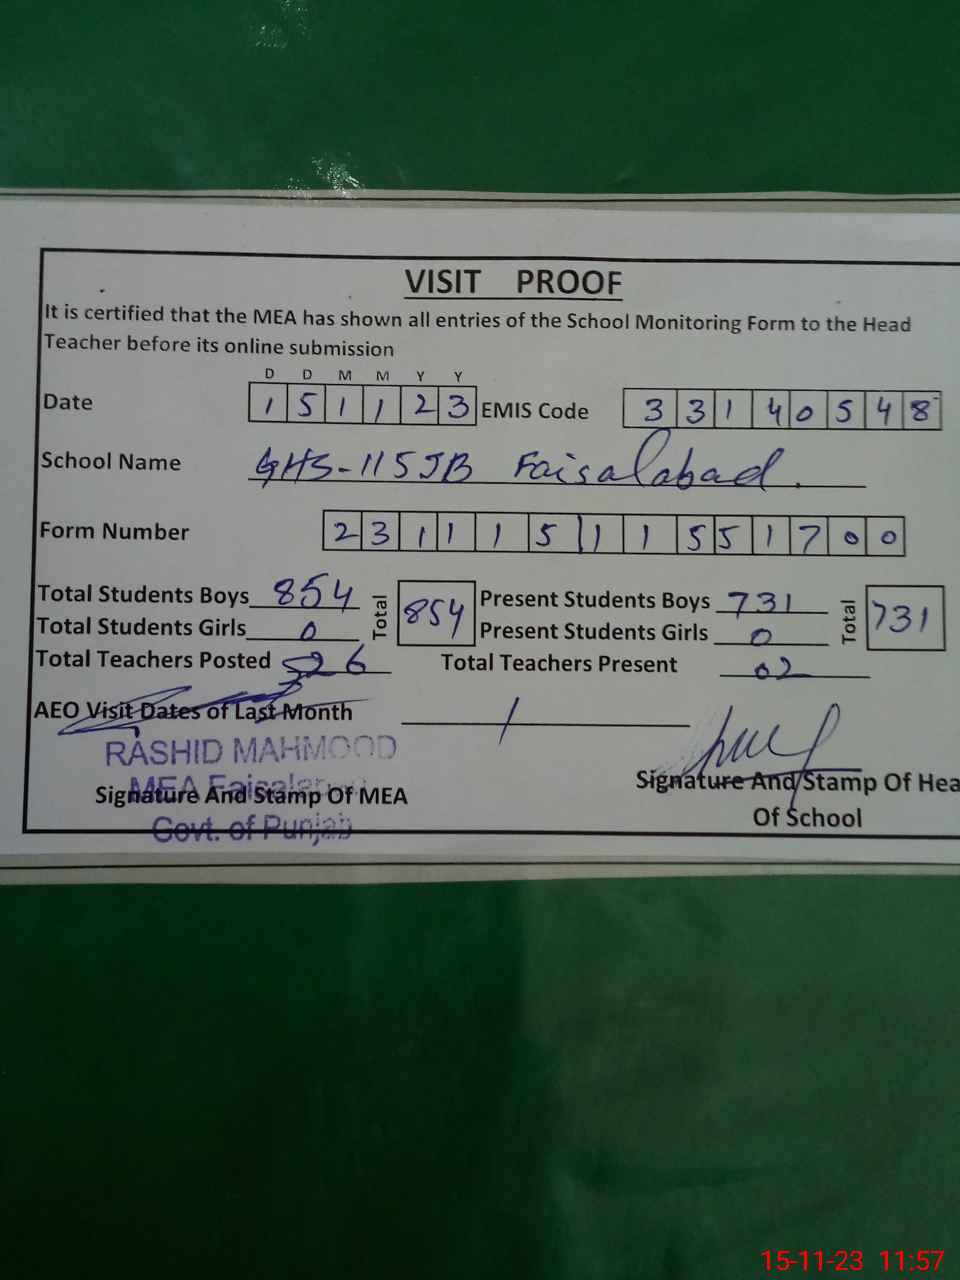 VISIT PROOF
It is certified that the MEA has shown all entries of the School Monitoring Form to the Head
Teacher before its online submission
D D M M Y Y
Date 1 5 1 1 2 3 EMIS Code 3 3 1 4 0 5 4 8
School Name GHS-115JB Faisalabad.
Form Number 2 3 1 1 1 5 1 1 5 5 1 7 0 0
Total Students Boys 854 Total 854 Present Students Boys 731 Total 731
Total Students Girls 0 Present Students Girls 0
Total Teachers Posted 26 Total Teachers Present 02
AEO Visit Dates of Last Month /
RASHID MAHMOOD
MEA
Signature And Stamp Of MEA Signature And Stamp Of Hea
Govt. of Punjab Of School
15-11-23 11:57